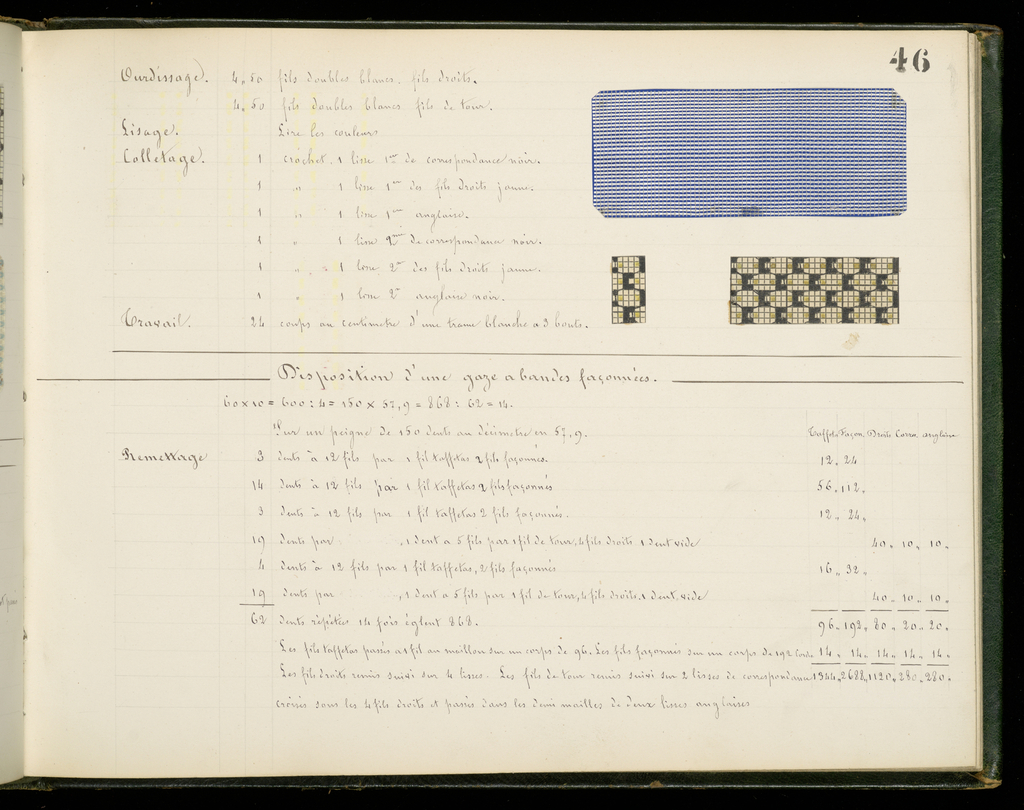 46
Ourdissage. 4,50 fils doubles blancs. fils droits.
4,50 fils doubles blancs fils de tour.
Lisage. Lire les couleurs
Colletage. 1 crochet, 1 lisse 1re de correspondance noir.
1 " 1 lisse 1re des fils droits jaune.
1 " 1 lisse 1re anglaise.
1 " 1 lisse 2me de correspondance noir.
1 " 1 lisse 2me des fils droits jaune.
1 " 1 lisse 2me anglaise noir.
Travail. 24 coups au centimetre d'une trame blanche a 3 bouts.
Disposition d'une gaze a bandes façonnées.
60 x 10 = 600 : 4 = 150 x 57,9 = 868 : 62 = 14.
Sur un peigne de 150 dents au décimetre en 57,9. Taffetas Façon. Droits Corres. anglaise
Remettage 3 dents à 12 fils par 1 fil taffetas 2 fils façonnés. 12, 24
14 dents à 12 fils par 1 fil taffetas 2 fils façonnés 56, 112,
3 dents à 12 fils par 1 fil taffetas 2 fils façonnés. 12, 24,
19 dents par , 1 dent a 5 fils par 1 fil de tour, 4 fils droits 1 dent vide 40, 10, 10,
4 dents à 12 fils par 1 fil taffetas, 2 fils façonnés 16, 32,
19 dents par , 1 dent a 5 fils par 1 fil de tour, 4 fils droits, 1 dent vide 40, 10, 10,
62 dents répétées 14 fois églent 868. 96, 192, 80, 20, 20,
Les fils taffetas passés a 1 fil au maillon sur un corps de 96. Les fils façonnés sur un corps de 192 Cordes 14, 14, 14, 14, 14,
Les fils droits remis suivi sur 4 lisses. Les fils de tour remis suivi sur 2 lisses de correspondance 1344, 2688, 1120, 280, 280,
croisés sous les 4 fils droits et passés dans les demi mailles de deux lisses anglaises